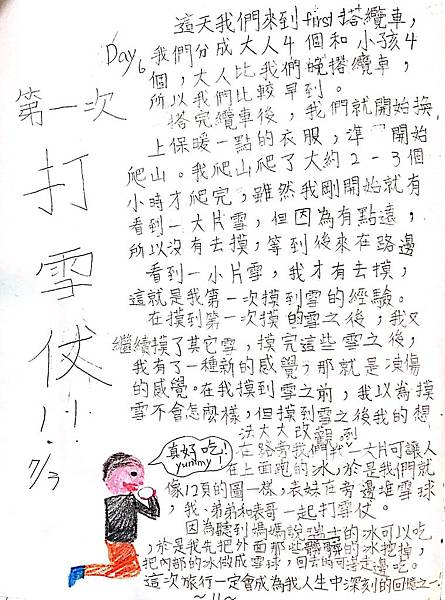 Day 6
第一次打雪仗!!
7/3
這天我們來到first搭纜車，
我們分成大人4個和小孩4
個，大人比我們晚搭纜車，
所以我們比較早到。
搭完纜車後，我們就開始換
上保暖一點的衣服，準 開始
爬山。我爬山爬了大約2-3個
小時才爬完，雖然我剛開始就有
看到一大片雪，但因為有點遠，
所以沒有去摸，等到後來在路邊
看到一小片雪，我才有去摸，
這就是我第一次摸到雪的經驗。
在摸到第一次摸的雪之後，我又
繼續摸了其它雪，摸完這些雪之後，
我有了一種新的感覺，那就是凍傷
的感覺。在我摸到雪之前，我以為摸
雪不會怎麼樣，但摸到雪之後我的想
法大大改觀
在路旁我們 一大片可讓人
在上面跑的冰，於是我們就
像12頁的圖一樣，表妹在旁邊堆雪球
，我、弟弟和表哥一起打雪仗。
因為聽到媽媽說瑞士的冰可以吃
，於是我先把外面那些髒髒的冰挖掉，
把內部的冰做成雪球，回去的 邊走邊吃。
這次旅行一定會成為我人生中深刻的回憶之一。
真好吃!
yummy!
~11~